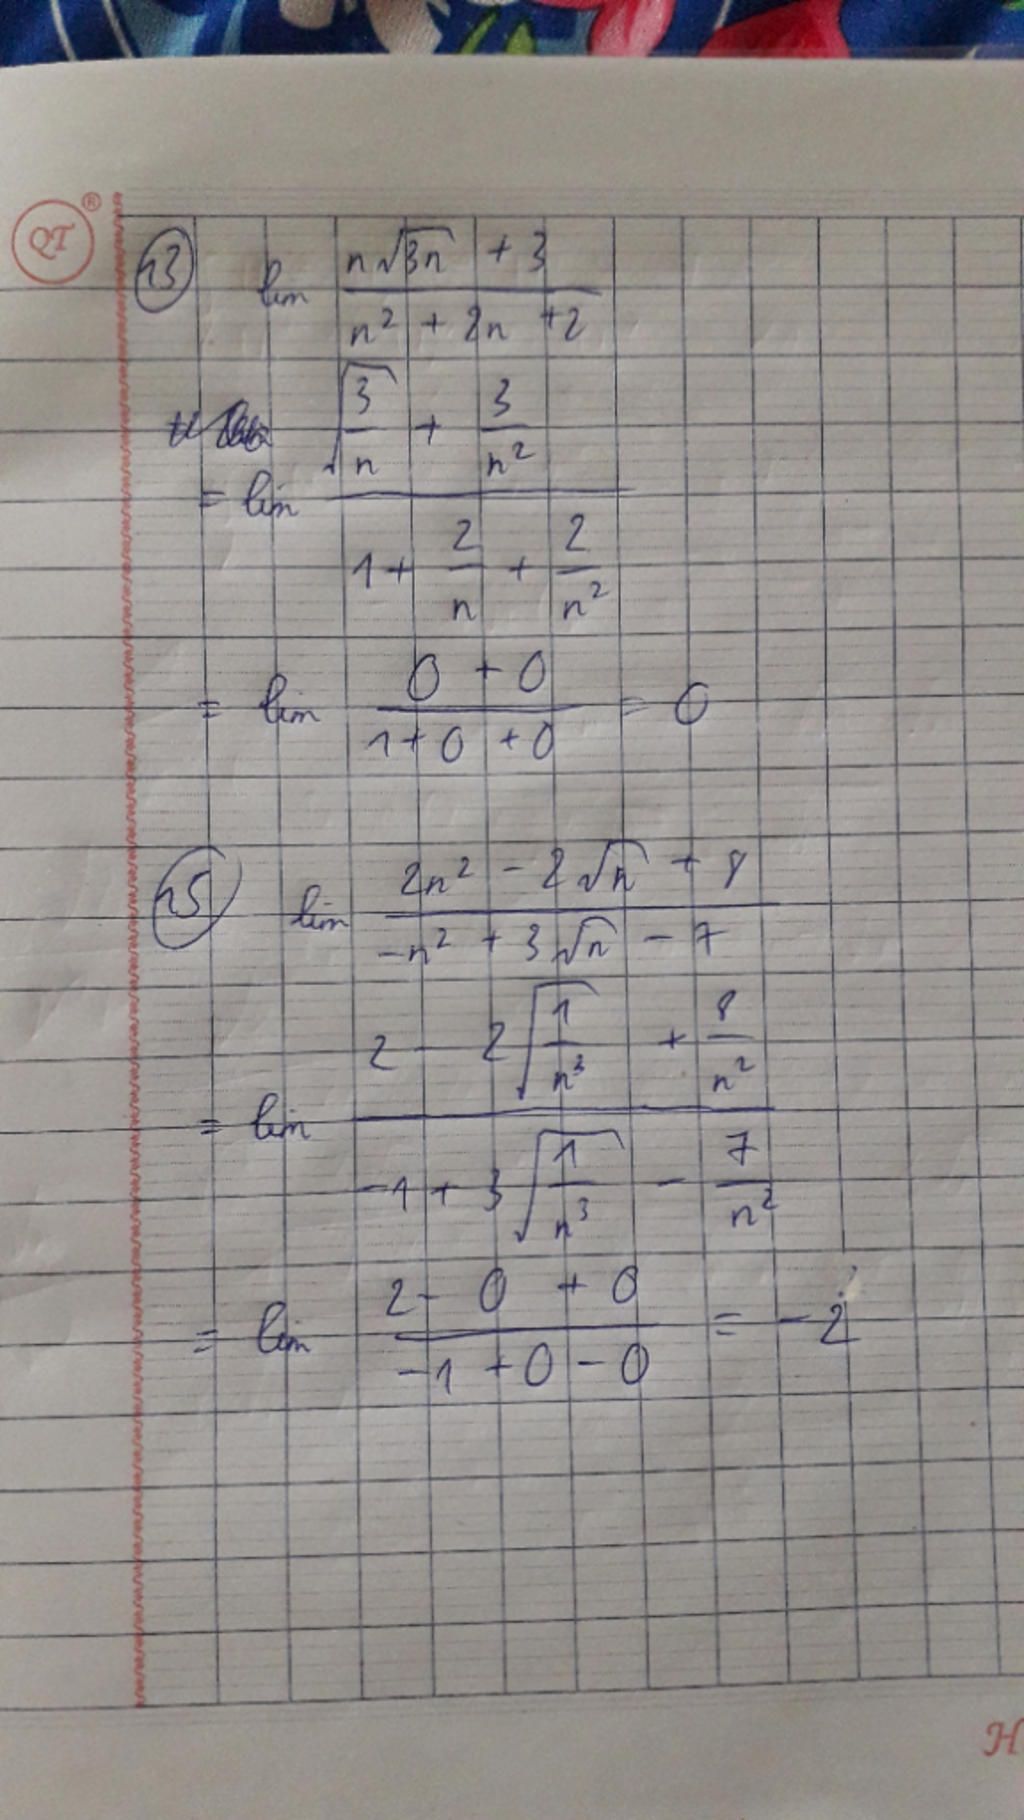 QT ®
13 lim (n√3n + 3)/(n² + 2n + 2)
= lim (√(3/n) + 3/n²)/(1 + 2/n + 2/n²)
= lim (0 + 0)/(1 + 0 + 0) = 0
15 lim (2n² - 2√n + 8)/(-n² + 3√n - 7)
= lim (2 - 2√(1/n³) + 8/n²)/(-1 + 3√(1/n³) - 7/n²)
= lim (2 - 0 + 0)/(-1 + 0 - 0) = -2
H